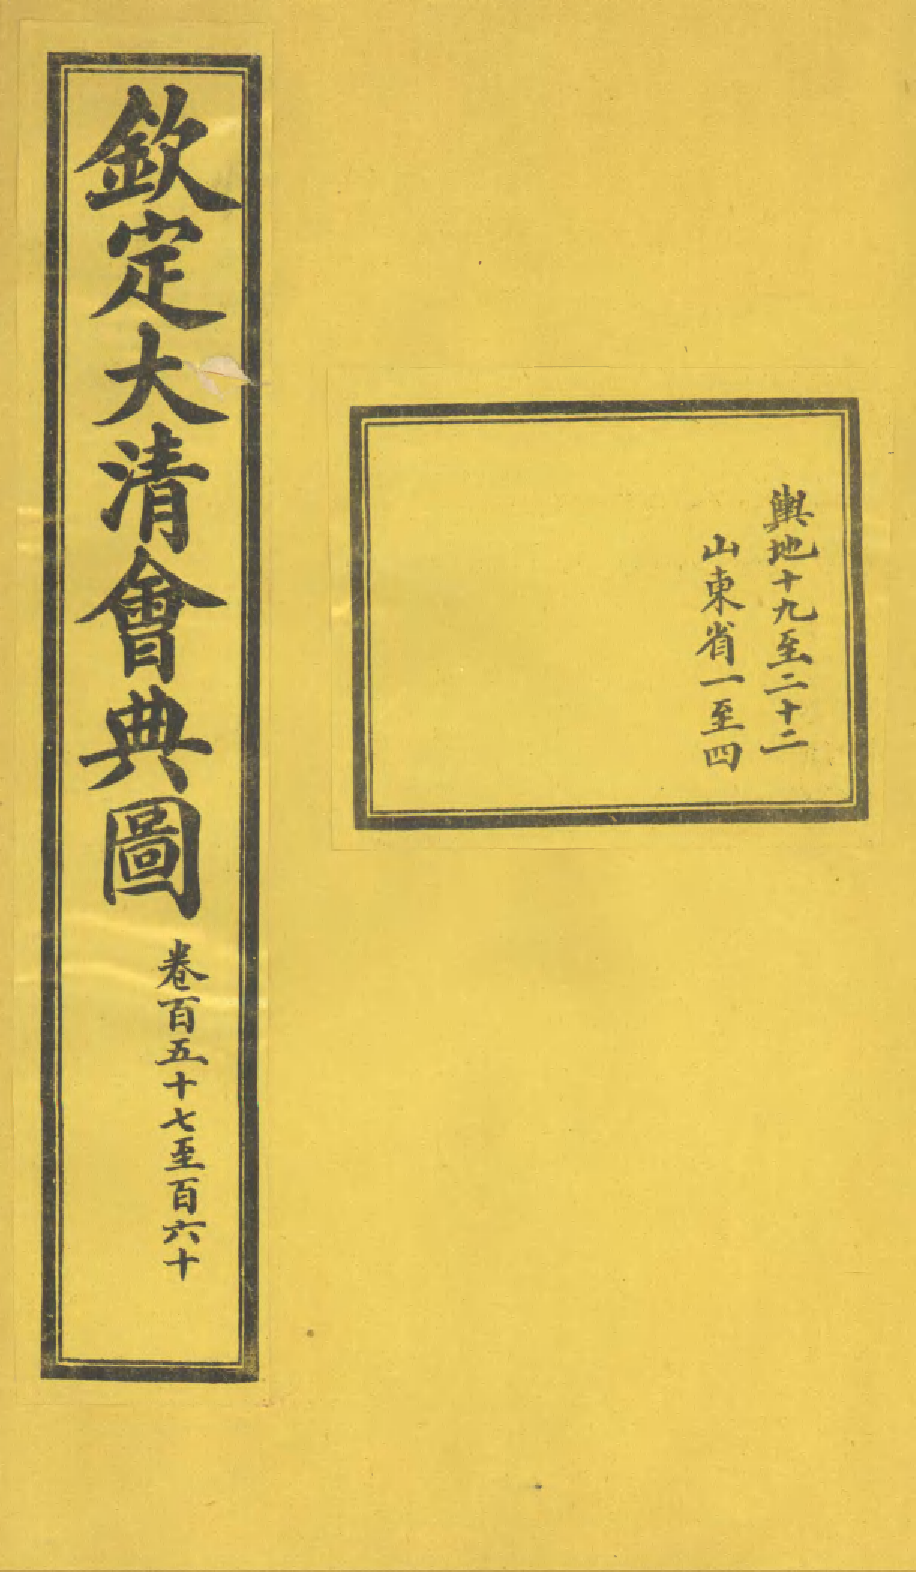 欽定大清會典圖
卷百五十七至百六十
輿地十九至二十二
山東省一至四